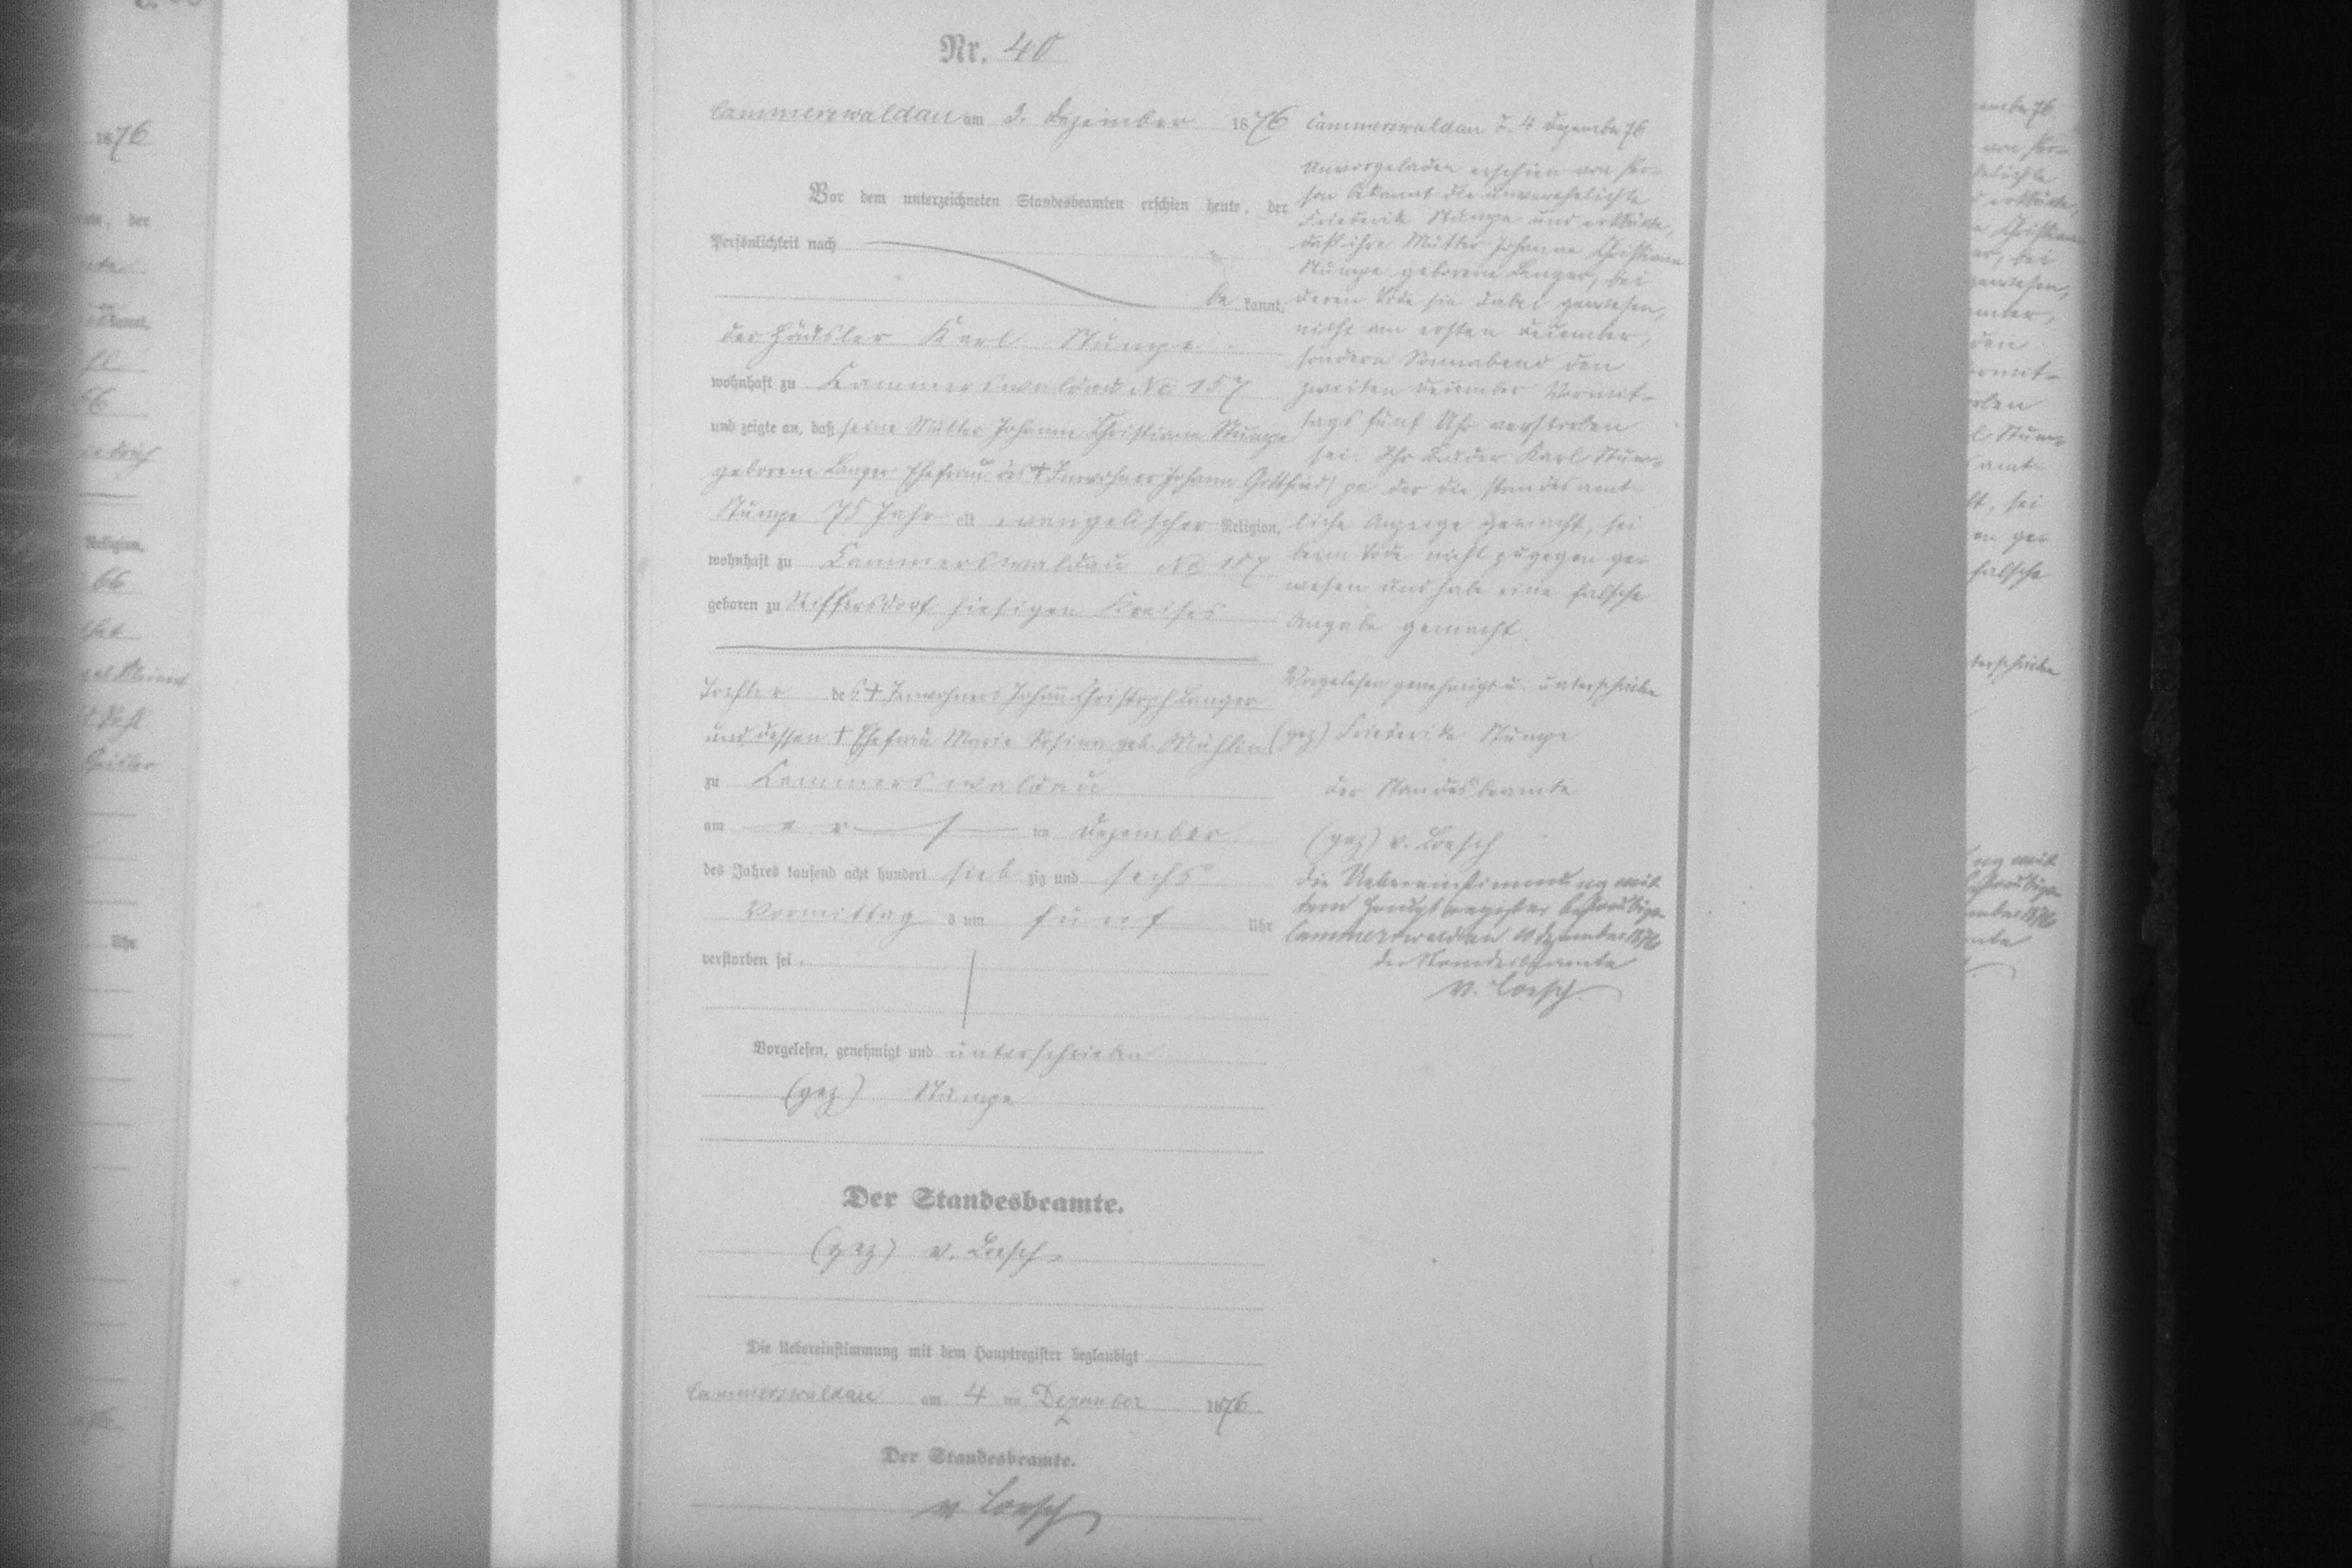 Nr. 40
Cammerswaldau am 3. Dezember 1876
Vor dem unterzeichneten Standesbeamten erschien heute, der
Persönlichkeit nach
be kannt,
der Häusler Karl Stumpe
wohnhaft zu Kammerswaldau No 157
und zeigte an, daß seine Mutter Johanne Christiane Stumpe
geborene Langer Ehefrau des † Inwohner Johann Gottfried
Stumpe 75 Jahr alt evangelischer Religion,
wohnhaft zu Kammerswaldau No 157
geboren zu Seiffersdorf hiesigen Kreises
Tochter des † Inwohners Johann Christoph Langer
und dessen † Ehefrau Marie Rosina geb.
zu Kammerswaldau
am er s ten Dezember
des Jahres tausend acht hundert sieb zig und sechs
Vormittag s um fünf Uhr
verstorben sei.
Vorgelesen, genehmigt und unterschrieben
(gez) Stumpe
Der Standesbeamte.
(gez) v. Loesch
Die Uebereinstimmung mit dem Hauptregister beglaubigt
Cammerswaldau am 4 ten Dezember 1876
Der Standesbeamte.
v. Loesch
Cammerswaldau d. 4 Dezember 76
Unvorgeladen erschien von Per-
son bekannt die unverehelichte
Friederike Stumpe und erklärte,
daß ihre Mutter Johanne Christiane
Stumpe geborene Langer, bei
deren Tode sie dabei gewesen,
nicht am ersten December,
sondern Sonnabend den
zweiten December Vormit-
tags fünf Uhr verstorben
sei. Ihr Bruder Karl Stum-
pe der die standesamt-
liche Anzeige gemacht, sei
beim Tode nicht zugegen ge-
wesen und habe eine falsche
Angabe gemacht.
Vorgelesen genehmigt u. unterschrieben
(gez) Friederike Stumpe
der Standesbeamte
(gez) v. Loesch
die Uebereinstimmung mit
dem Hauptregister beglaubigt
Cammerswaldau 10 Dezember 1876
der Standesbeamte
v. Loesch